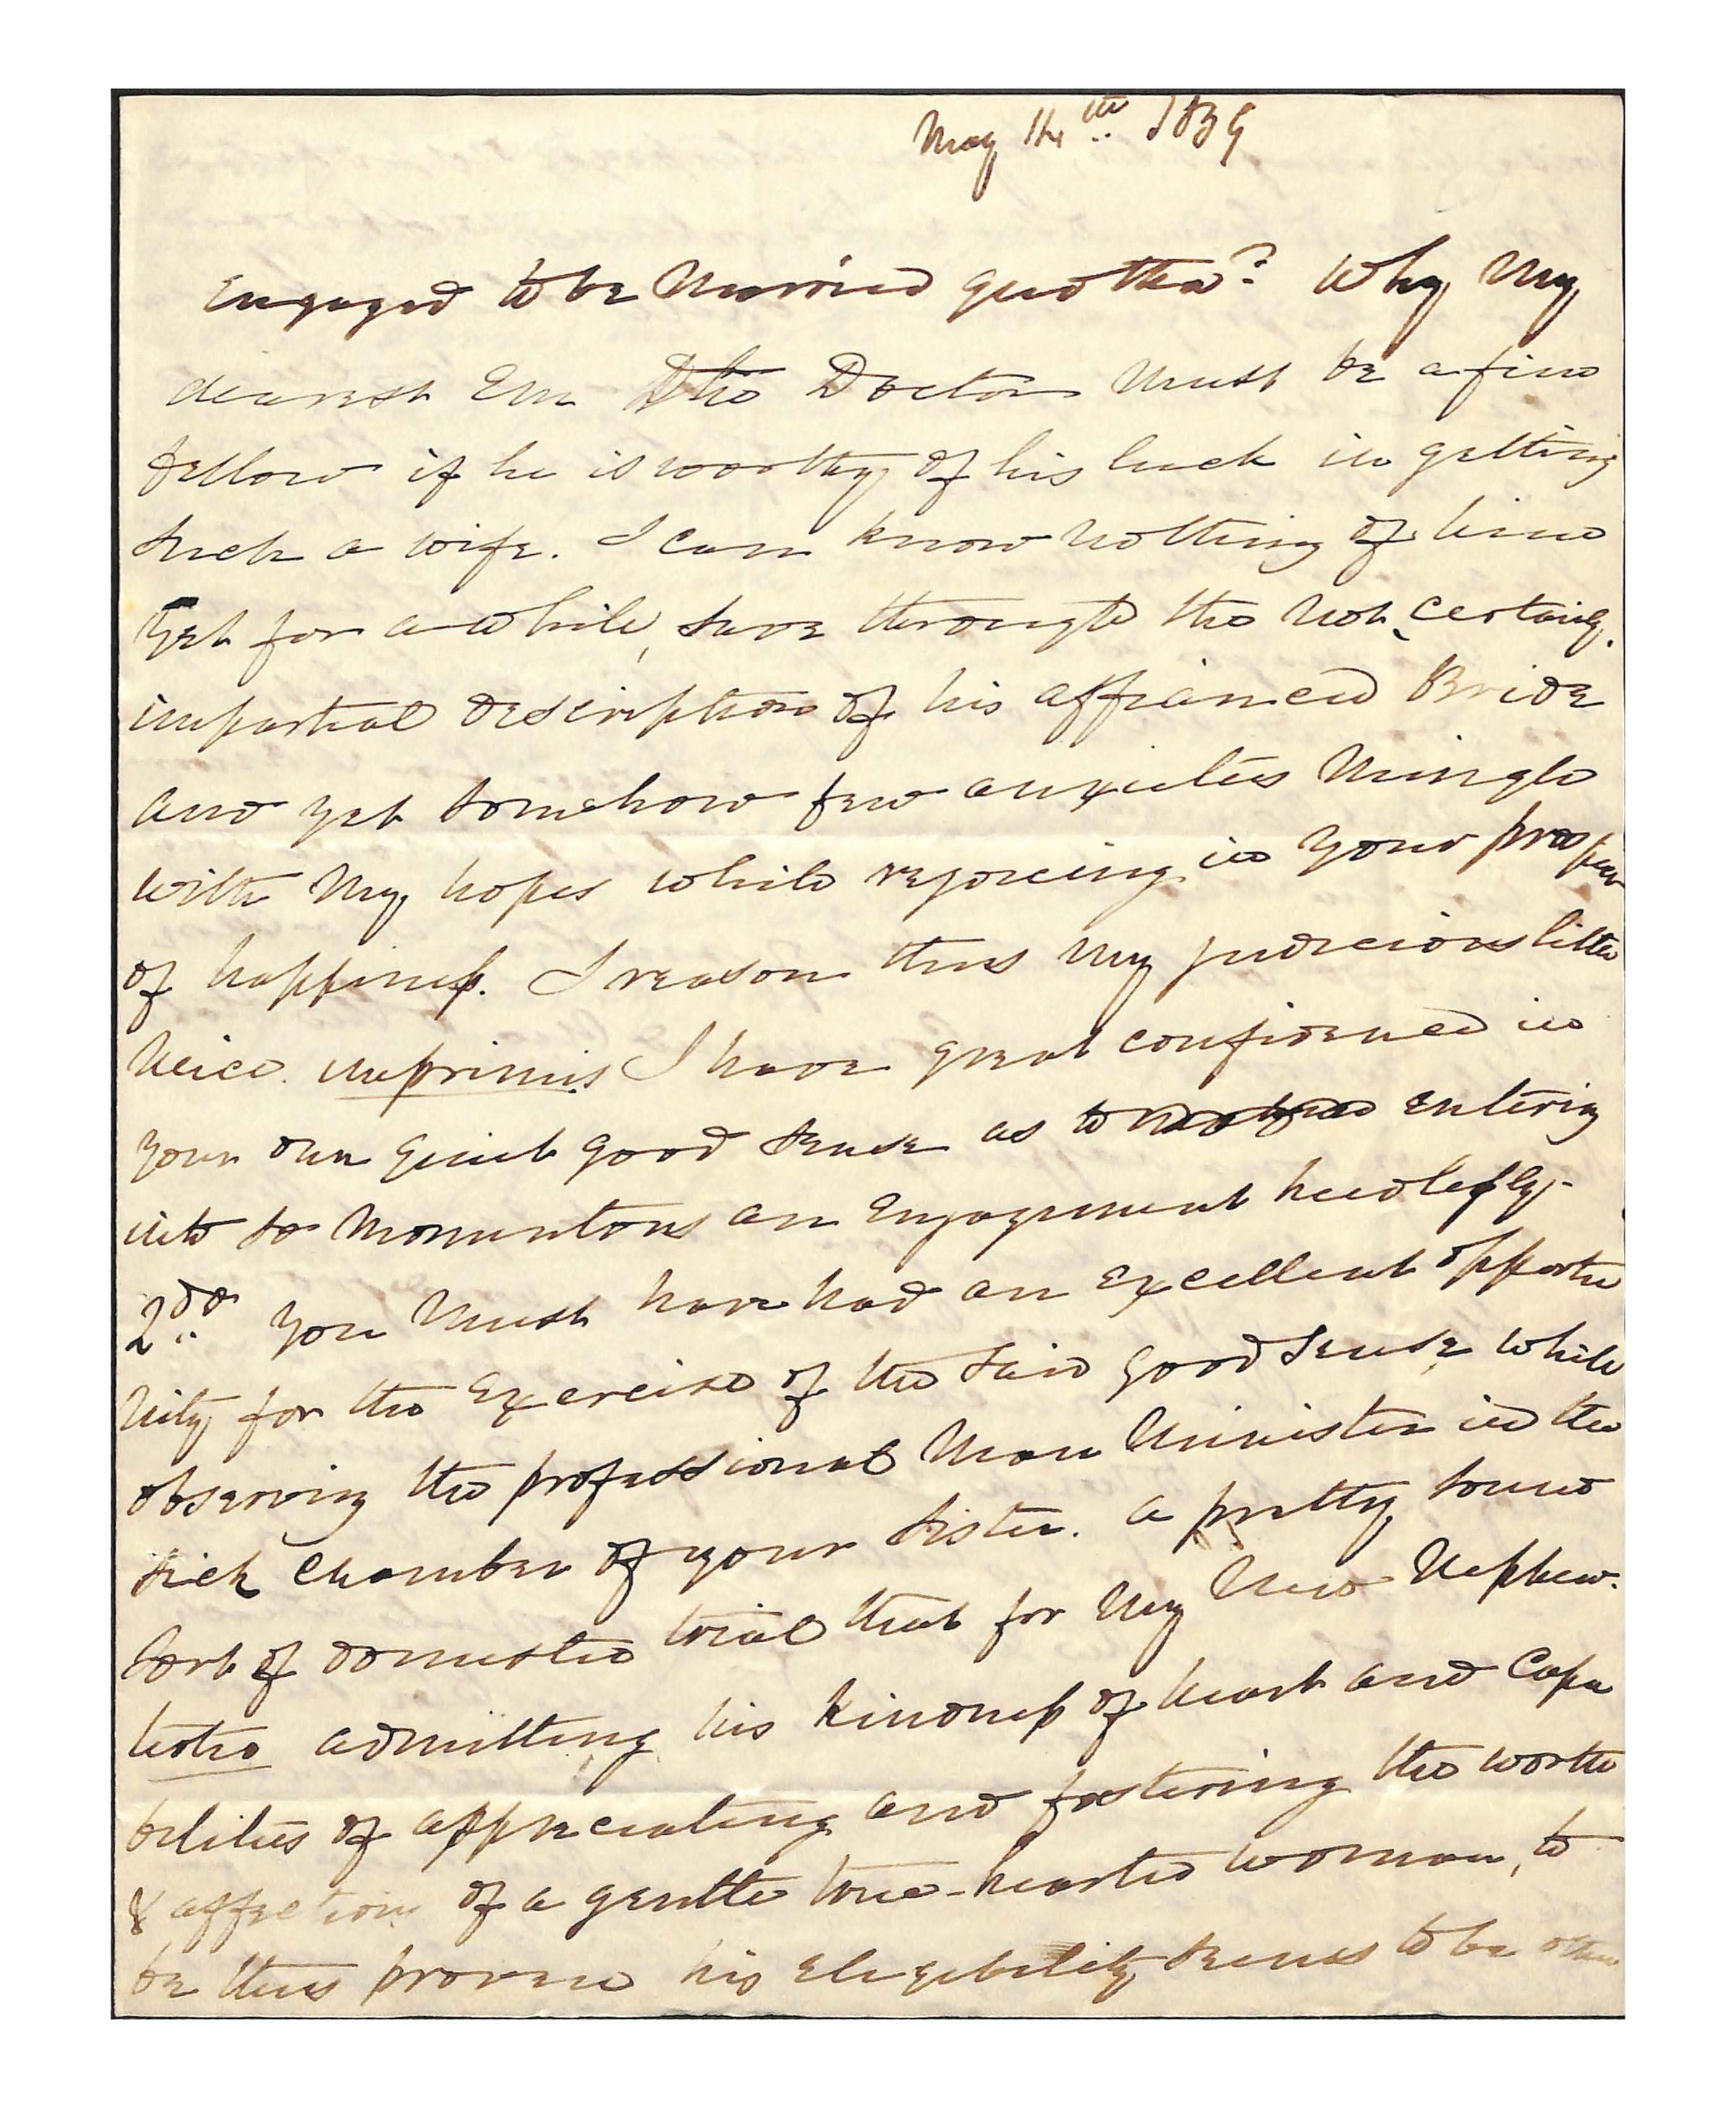 May 14th. 1839
Engaged to be Married quotha? Why My
dearest Em the Doctor Must be a fine
fellow if he is worthy of his luck in getting
such a wife. I can know Nothing of him
Yet for a while, save through the Not certainly
impartial description of his affianced Bride
and yet somehow few anxieties Mingle
with My hopes while rejoicing in Your prospect
of happiness. I reason thus My judicious little
Neice. imprimis I have great confidence in
your own quiet good sense as to entering
into so Momentous an Engagement heedlessly.
2do. You Must have had an Excellent opportu
nity for the Exercise of the said good sense while
observing the professional Man Minister in the
sick chamber of your sister. a pretty sound
sort of domestic trial that for My New Nephew.
tertio admitting his kindness of heart and Capa
bilities of appreciating and fostering the worth
& affection of a gentle true-hearted woman, to
be thus proven his Elegibility seems to be